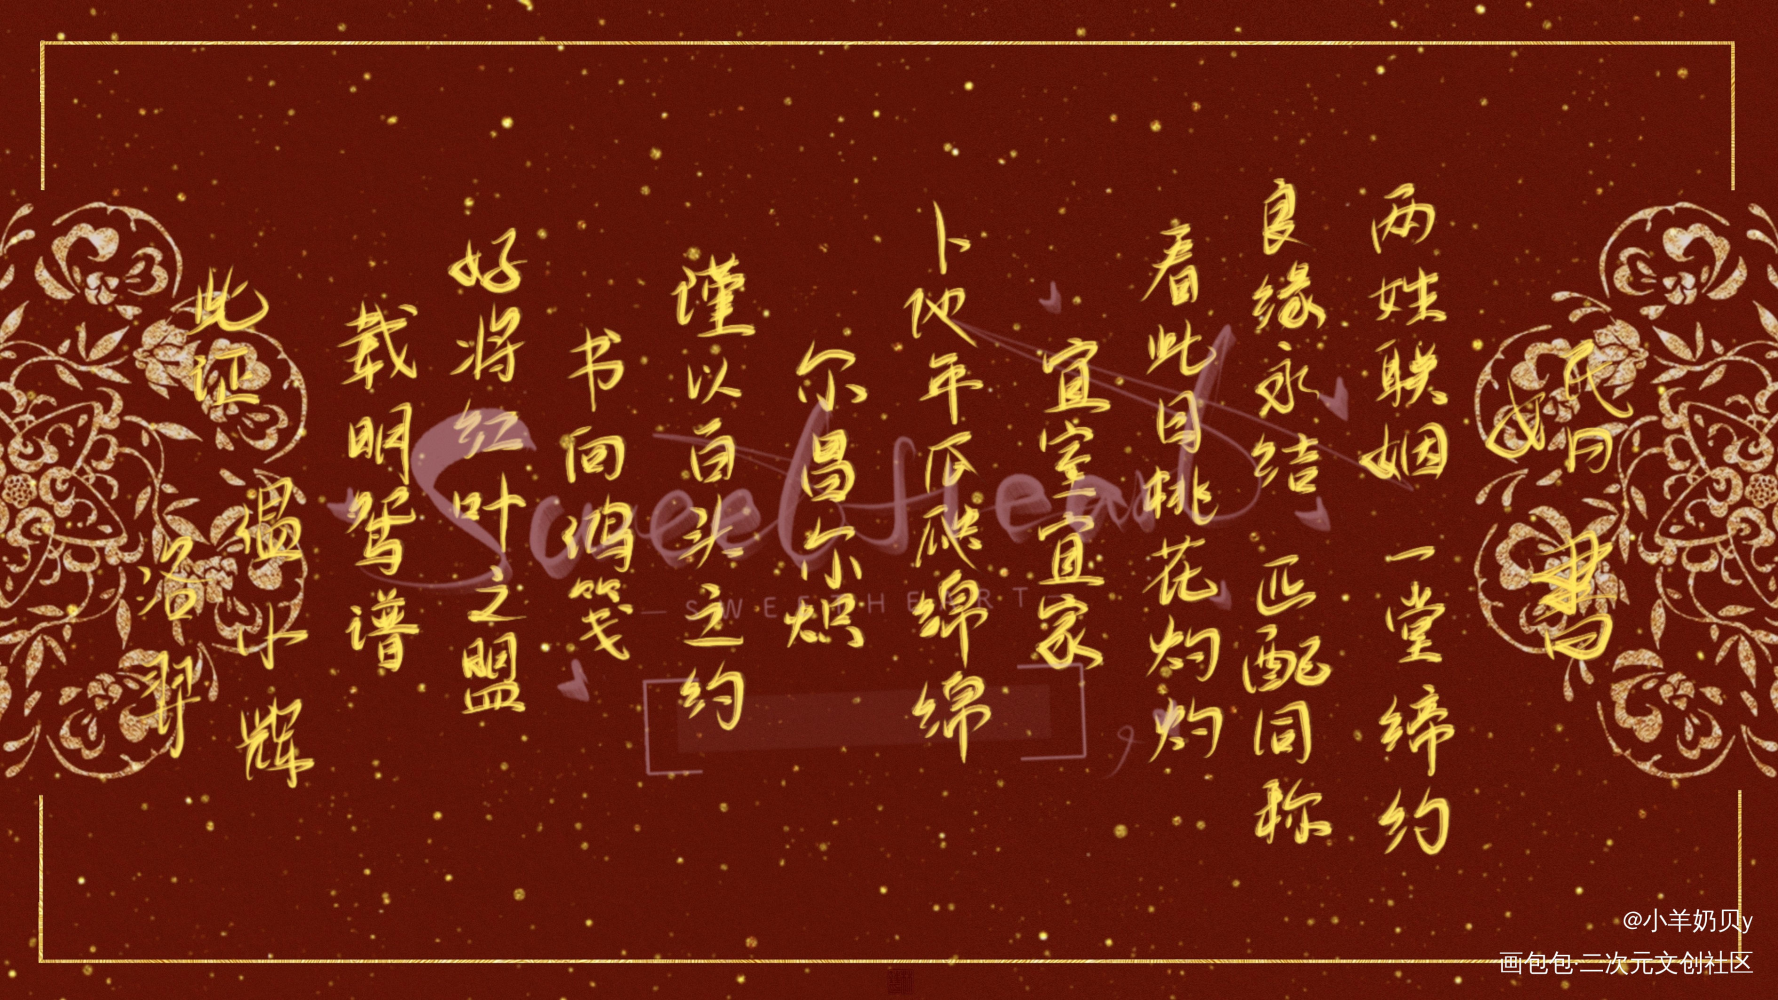 婚书
两姓联姻 一堂缔约
良缘永结 匹配同称
看此日桃花灼灼
宜室宜家
卜他年瓜瓞绵绵
尔昌尔炽
谨以白头之约
书向鸿笺
好将红叶之盟
载明鸳谱
此证
温小辉
洛羿
Sweetheart
SWEETHEART
@小羊奶贝y
画包包·二次元文创社区